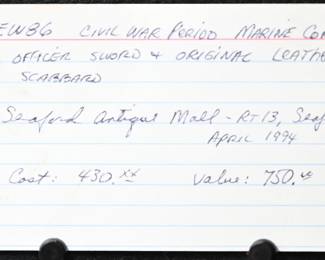 EW86 CIVIL WAR PERIOD MARINE COR
OFFICER SWORD & ORIGINAL LEATHE
SCABBARD
Seaford Antique Mall - RT 13, Seaf
APRIL 1994
Cost: 430.xx Value: 750.